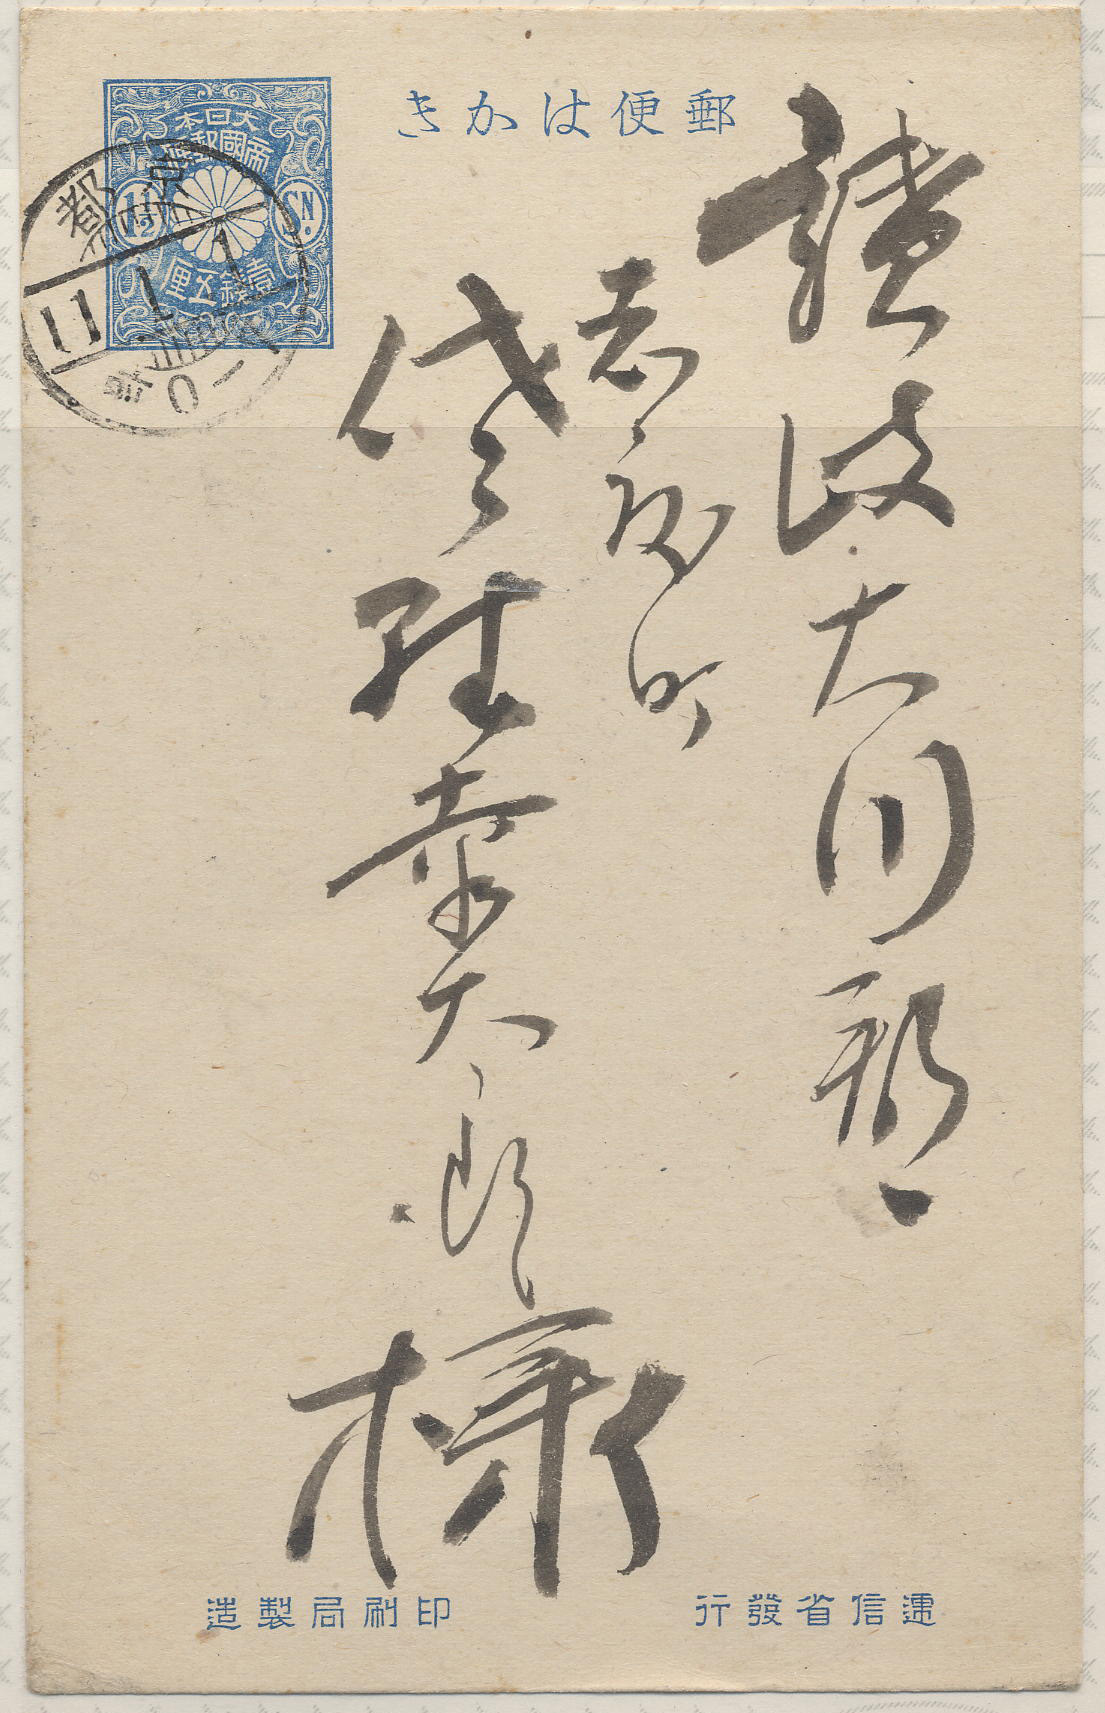 郵便はかき
大日本
帝國郵便
1½ SN.
壹錢五厘
京都
11.1.1
讃岐大川郡
志度町
幸太郎様
遞信省發行
印刷局製造